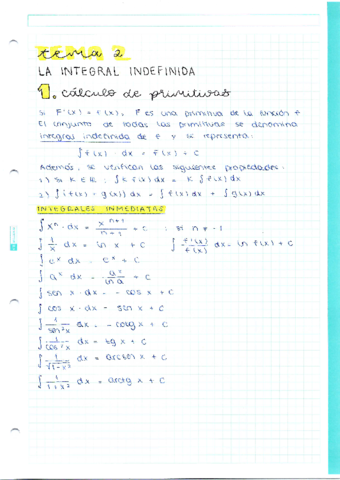 tema 2
LA INTEGRAL INDEFINIDA
1. cálculo de primitivas
Si F'(x) = f(x), F es una primitiva de la función f
El conjunto de todas las primitivas se denomina
integral indefinida de f y se representa:
∫ f(x) dx = F(x) + C
Además, se verifican las siguientes propiedades:
1) Si K ∈ ℝ : ∫ K f(x) dx = K ∫ f(x) dx
2) ∫ (f(x) + g(x)) dx = ∫ f(x) dx + ∫ g(x) dx
INTEGRALES INMEDIATAS
∫ xⁿ · dx = xⁿ⁺¹/(n+1) + C ; si n ≠ -1
∫ 1/x dx = ln x + C ∫ f'(x)/f(x) dx = ln f(x) + C
∫ eˣ dx = eˣ + C
∫ aˣ dx = aˣ/ln a + C
∫ sen x · dx = - cos x + C
∫ cos x · dx = sen x + C
∫ 1/sen²x dx = - cotg x + C
∫ 1/cos²x dx = tg x + C
∫ 1/√(1-x²) dx = arcsen x + C
∫ 1/(1+x²) dx = arctg x + C